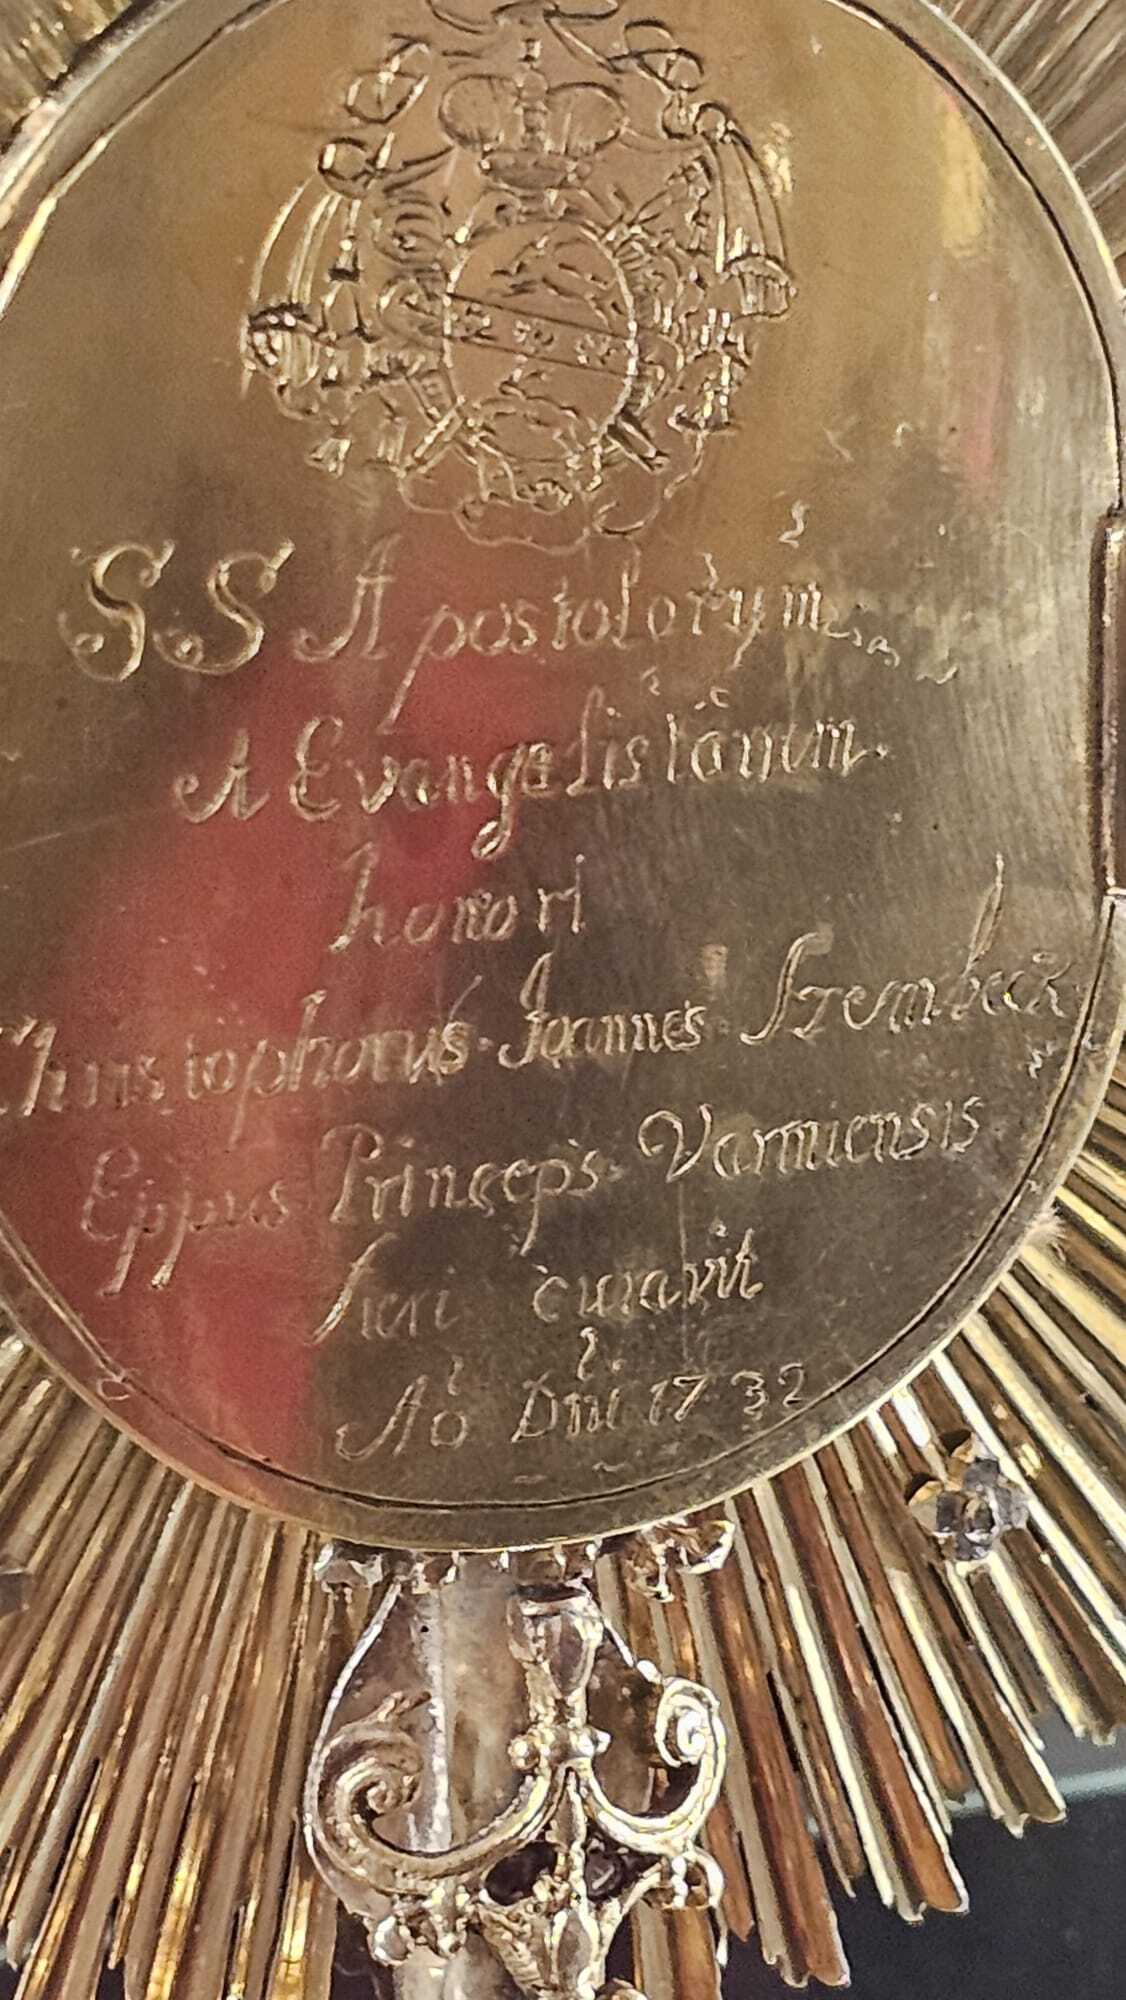 SS Apostolorum
A Evangelistarum
honori
Christophorus Joannes Szembeck
Eppus Princeps Varmiensis
fieri curavit
Ao Dni 1732